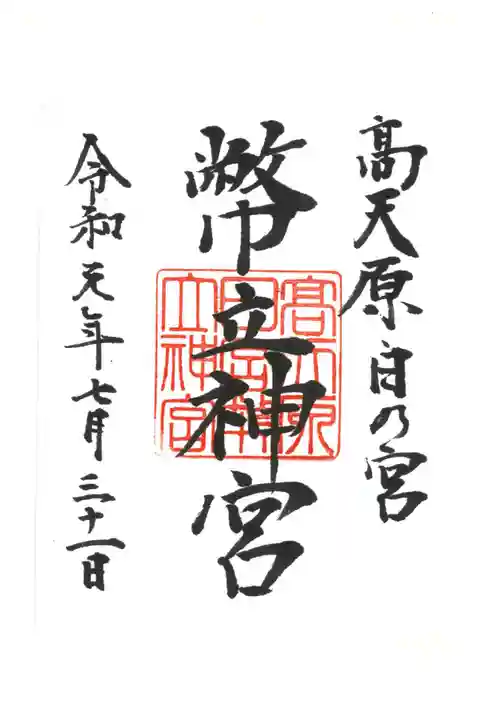 髙天原日乃宮
幣立神宮
高天原
日宮幣
立神宮
令和元年七月三十一日